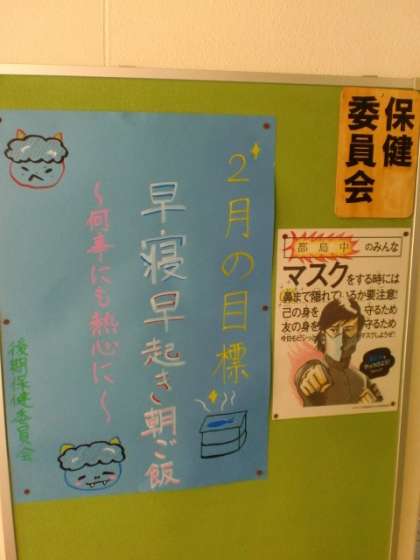 保健
委員会
2月の目標
早寝早起き朝ご飯
～何事にも熱心に～
後期保健委員会
都島中のみんな
マスクをする時には
鼻まで隠れているか要注意!
己の身を守るため
友の身を守るため